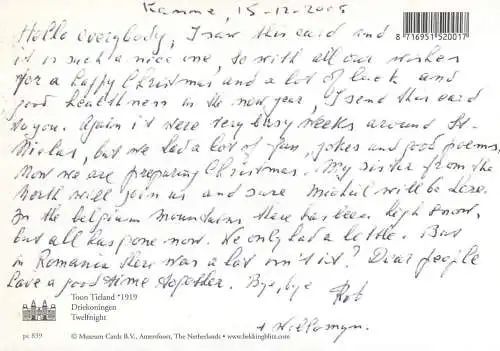 Kamme, 15-12-2008
8 716951 520017
Hello everybody, I saw this card and
it is such a nice one, so with all our wishes
for a happy Christmas and a lot of luck and
good healthness in the new year, I send this card
to you. Again it were very busy weeks around St-
Niclas, but we had a lot of fun, jokes and good poems,
Now we are preparing Christmas. My sister from the
North will join us and sure Michiel will be here.
In the belgium mountains there has been high snow,
but all has gone now. We only had a little. But
in Romania there was a lot isn't it? Dear people
have a good time together. Bye, bye Rob
Toon Tieland *1919
Driekoningen
Twelfnight
+ Willemyn.
pc 839
© Museum Cards B.V., Amersfoort, The Netherlands • www.bekkingblitz.com